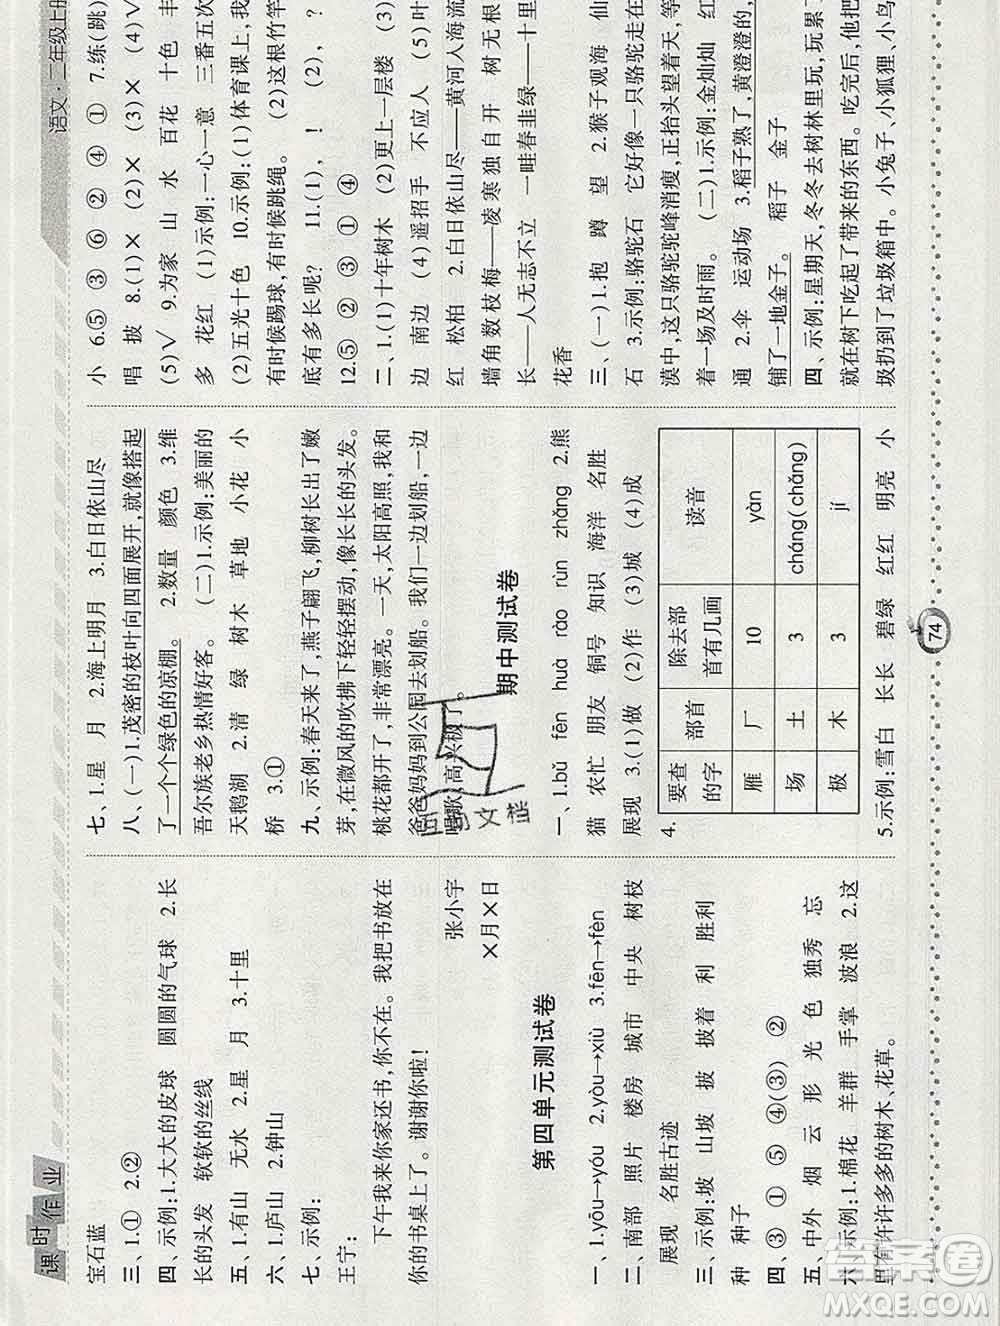 课时作业
语文·二年级上
宝石蓝
三、1.① 2.②
四、示例:1.大大的皮球 圆圆的气球 2.长
长的头发 软软的丝线
五、1.有山 无水 2.星 月 3.十里
六、1.庐山 2.钟山
七、示例:
王宁:
下午我来你家还书,你不在。我把书放在
你的书桌上了。谢谢你啦!
张小宇
×月×日
第四单元测试卷
一、1.yōu→yóu 2.yòu→xiù 3.fēn→fèn
二、南部 照片 楼房 城市 中央 树枝
展现 名胜古迹
三、示例:坡 山坡 披 披着 利 胜利
种 种子
四、③ ① ⑤ ④(③) ②
五、中外 烟 云 形 光 色 独秀 忘
六、示例:1.棉花 羊群 手掌 波浪 2.这
里有许许多多的树木、花草。
七、1.星 月 2.海上明月 3.白日依山尽
八、(一)1.茂密的枝叶向四面展开,就像搭起
了一个个绿色的凉棚。 2.数量 颜色 3.维
吾尔族老乡热情好客。 (二)1.示例:美丽的
天鹅湖 2.清 绿 树木 草地 小花 小
桥 3.①
九、示例:春天来了,燕子翩飞,柳树长出了嫩
芽,在微风的吹拂下轻轻摆动,像长长的头发。
桃花都开了,非常漂亮。一天,太阳高照,我和
爸爸妈妈到公园去划船。我们一边划船,一边
唱歌,高兴极了。
期中测试卷
一、1.bǔ fēn huà rào rùn zhǎng 2.熊
猫 农忙 朋友 铜号 知识 海洋 名胜
展现 3.(1)做 (2)作 (3)城 (4)成
4.
要查的字 部首 除去部首有几画 读音
雁 厂 10 yàn
场 土 3 cháng(chǎng)
极 木 3 jí
5.示例:雪白 长长 碧绿 红红 明亮 小
小 6.⑤ ③ ⑥ ② ④ ① 7.练(跳)
唱 披 8.(1)× (2)× (3)× (4)√
(5)√ 9.为家 山 水 百花 十色 丰
多 花红 (1)示例:一心一意 三番五次
(2)五光十色 10.示例:(1)体育课上,我
有时候踢球,有时候跳绳。 (2)这根竹竿
底有多长呢? 11.(1), ! (2), ?
12.⑤ ② ③ ① ④
二、1.(1)十年树木 (2)更上一层楼 (3)
边 南边 (4)遥招手 不应人 (5)叶
红 松柏 2.白日依山尽——黄河入海流
墙角数枝梅——凌寒独自开 树无根
长——人无志不立 一畦春韭绿——十里
花香
三、(一)1.抱 蹲 望 2.猴子观海 仙
石 3.示例:骆驼石 它好像一只骆驼走在
漠中,这只骆驼驼峰消瘦,正抬头望着天,等
着一场及时雨。 (二)1.示例:金灿灿 红
通 2.伞 运动场 3.稻子熟了,黄澄澄的,
铺了一地金子。 稻子 金子
四、示例:星期天,冬冬去树林里玩,玩累了
就在树下吃起了带来的东西。吃完后,他把
圾扔到了垃圾箱中。小兔子、小狐狸、小鸟
74
答案卷
MXQE.COM